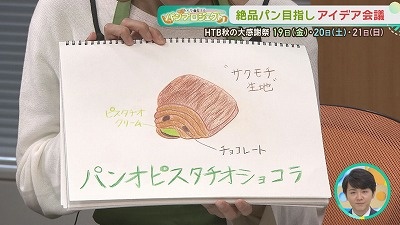 パンプロジェクト
絶品パン目指し アイデア会議
HTB秋の大感謝祭 19日(金)・20日(土)・21日(日)
"サクモチ"
生地
ピスタチオ
クリーム
チョコレート
パンオピスタチオショコラ